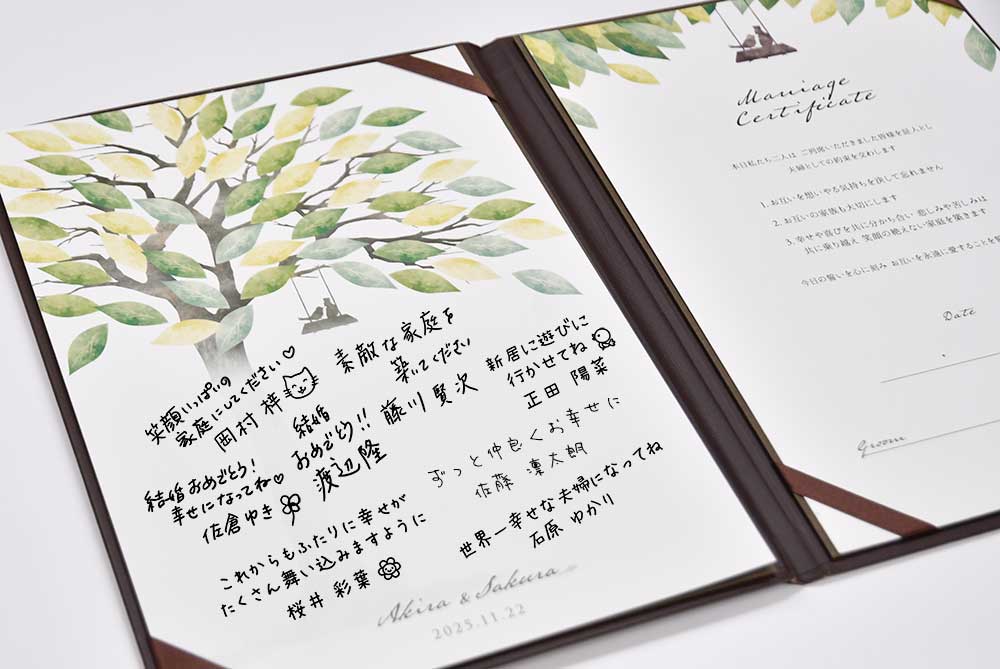 笑顔いっぱいの
家庭にしてください♡
岡村 梓
素敵な家庭を
築いてください
藤川 賢次
新居に遊びに
行かせてね
正田 陽菜
結婚
おめでとう!!
渡辺隆
結婚おめでとう!
幸せになってね♡
佐倉ゆき
ずっと仲良くお幸せに
佐藤 凜太朗
これからもふたりに幸せが
たくさん舞い込みますように
桜井 彩葉
世界一幸せな夫婦になってね
石原 ゆかり
Akira & Sakura
2025.11.22
Marriage
Certificate
本日私たち二人は ご列席いただきました皆様を証人とし
夫婦としての約束を交わします
1. お互いを想いやる気持ちを決して忘れません
2. お互いの家族も大切にします
3. 幸せや喜びを共に分かち合い 悲しみや苦しみは
共に乗り越え 笑顔の絶えない家庭を築きます
今日の誓いを心に刻み お互いを永遠に愛することを
Date
Groom